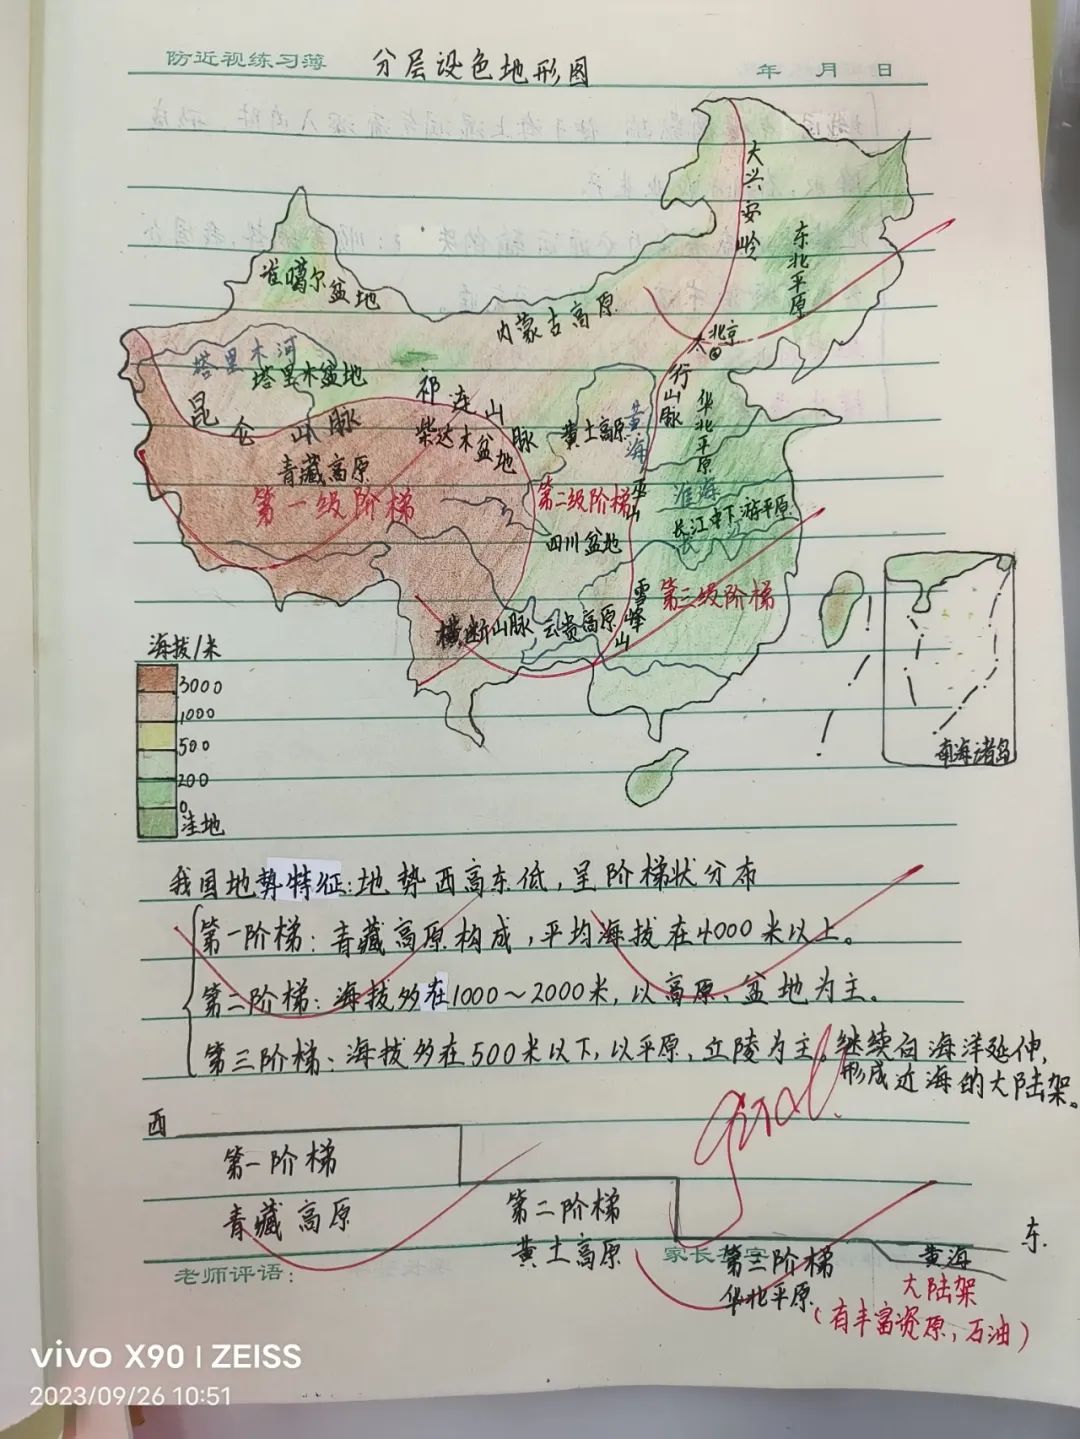 防近视练习薄 分层设色地形图 年 月 日
大兴安岭
东北平原
准噶尔盆地
内蒙古高原
北京
塔里木河
塔里木盆地
太行山脉
华北平原
昆仑山脉
祁连山脉
柴达木盆地
黄土高原
黄海
青藏高原
第一级阶梯
第二级阶梯
巫山
淮海
长江中下游平原
长江
四川盆地
第三级阶梯
雪峰山
横断山脉
云贵高原
南海诸岛
海拔/米
3000
1000
500
200
0
洼地
我国地势特征:地势西高东低,呈阶梯状分布
第一阶梯:青藏高原构成,平均海拔在4000米以上。
第二阶梯:海拔多在1000~2000米,以高原、盆地为主。
第三阶梯:海拔多在500米以下,以平原,丘陵为主。继续向海洋延伸,
形成近海的大陆架。
西
第一阶梯
青藏高原
第二阶梯
黄土高原
东.
家长签字
第三阶梯
华北平原
黄海
大陆架
(有丰富资原,石油)
老师评语:
vivo X90 | ZEISS
2023/09/26 10:51